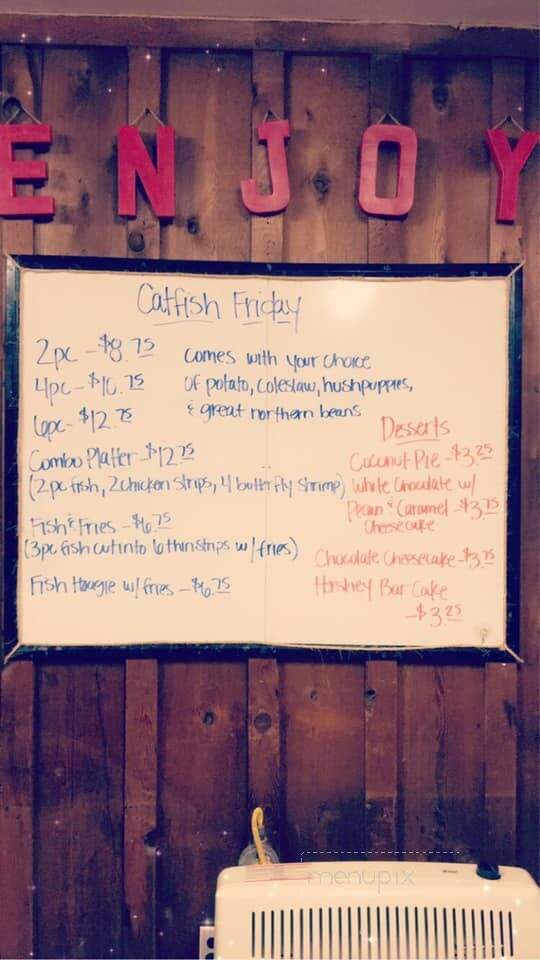 ENJOY
Catfish Friday
2pc - $8.75
4pc - $10.75
6pc - $12.75
comes with your choice
of potato, coleslaw, hushpuppies,
& great northern beans
Combo Platter - $12.75
(2pc fish, 2 chicken strips, 4 butterfly shrimp)
Fish & Fries - $6.75
(3pc fish cut into 6 thin strips w/ fries)
Fish Hoagie w/ fries - $6.75
Desserts
Coconut Pie - $3.25
White Chocolate w/
Pecan & Caramel - $3.75
Cheesecake
Chocolate Cheesecake - $3.75
Hershey Bar Cake
- $3.25
menupix